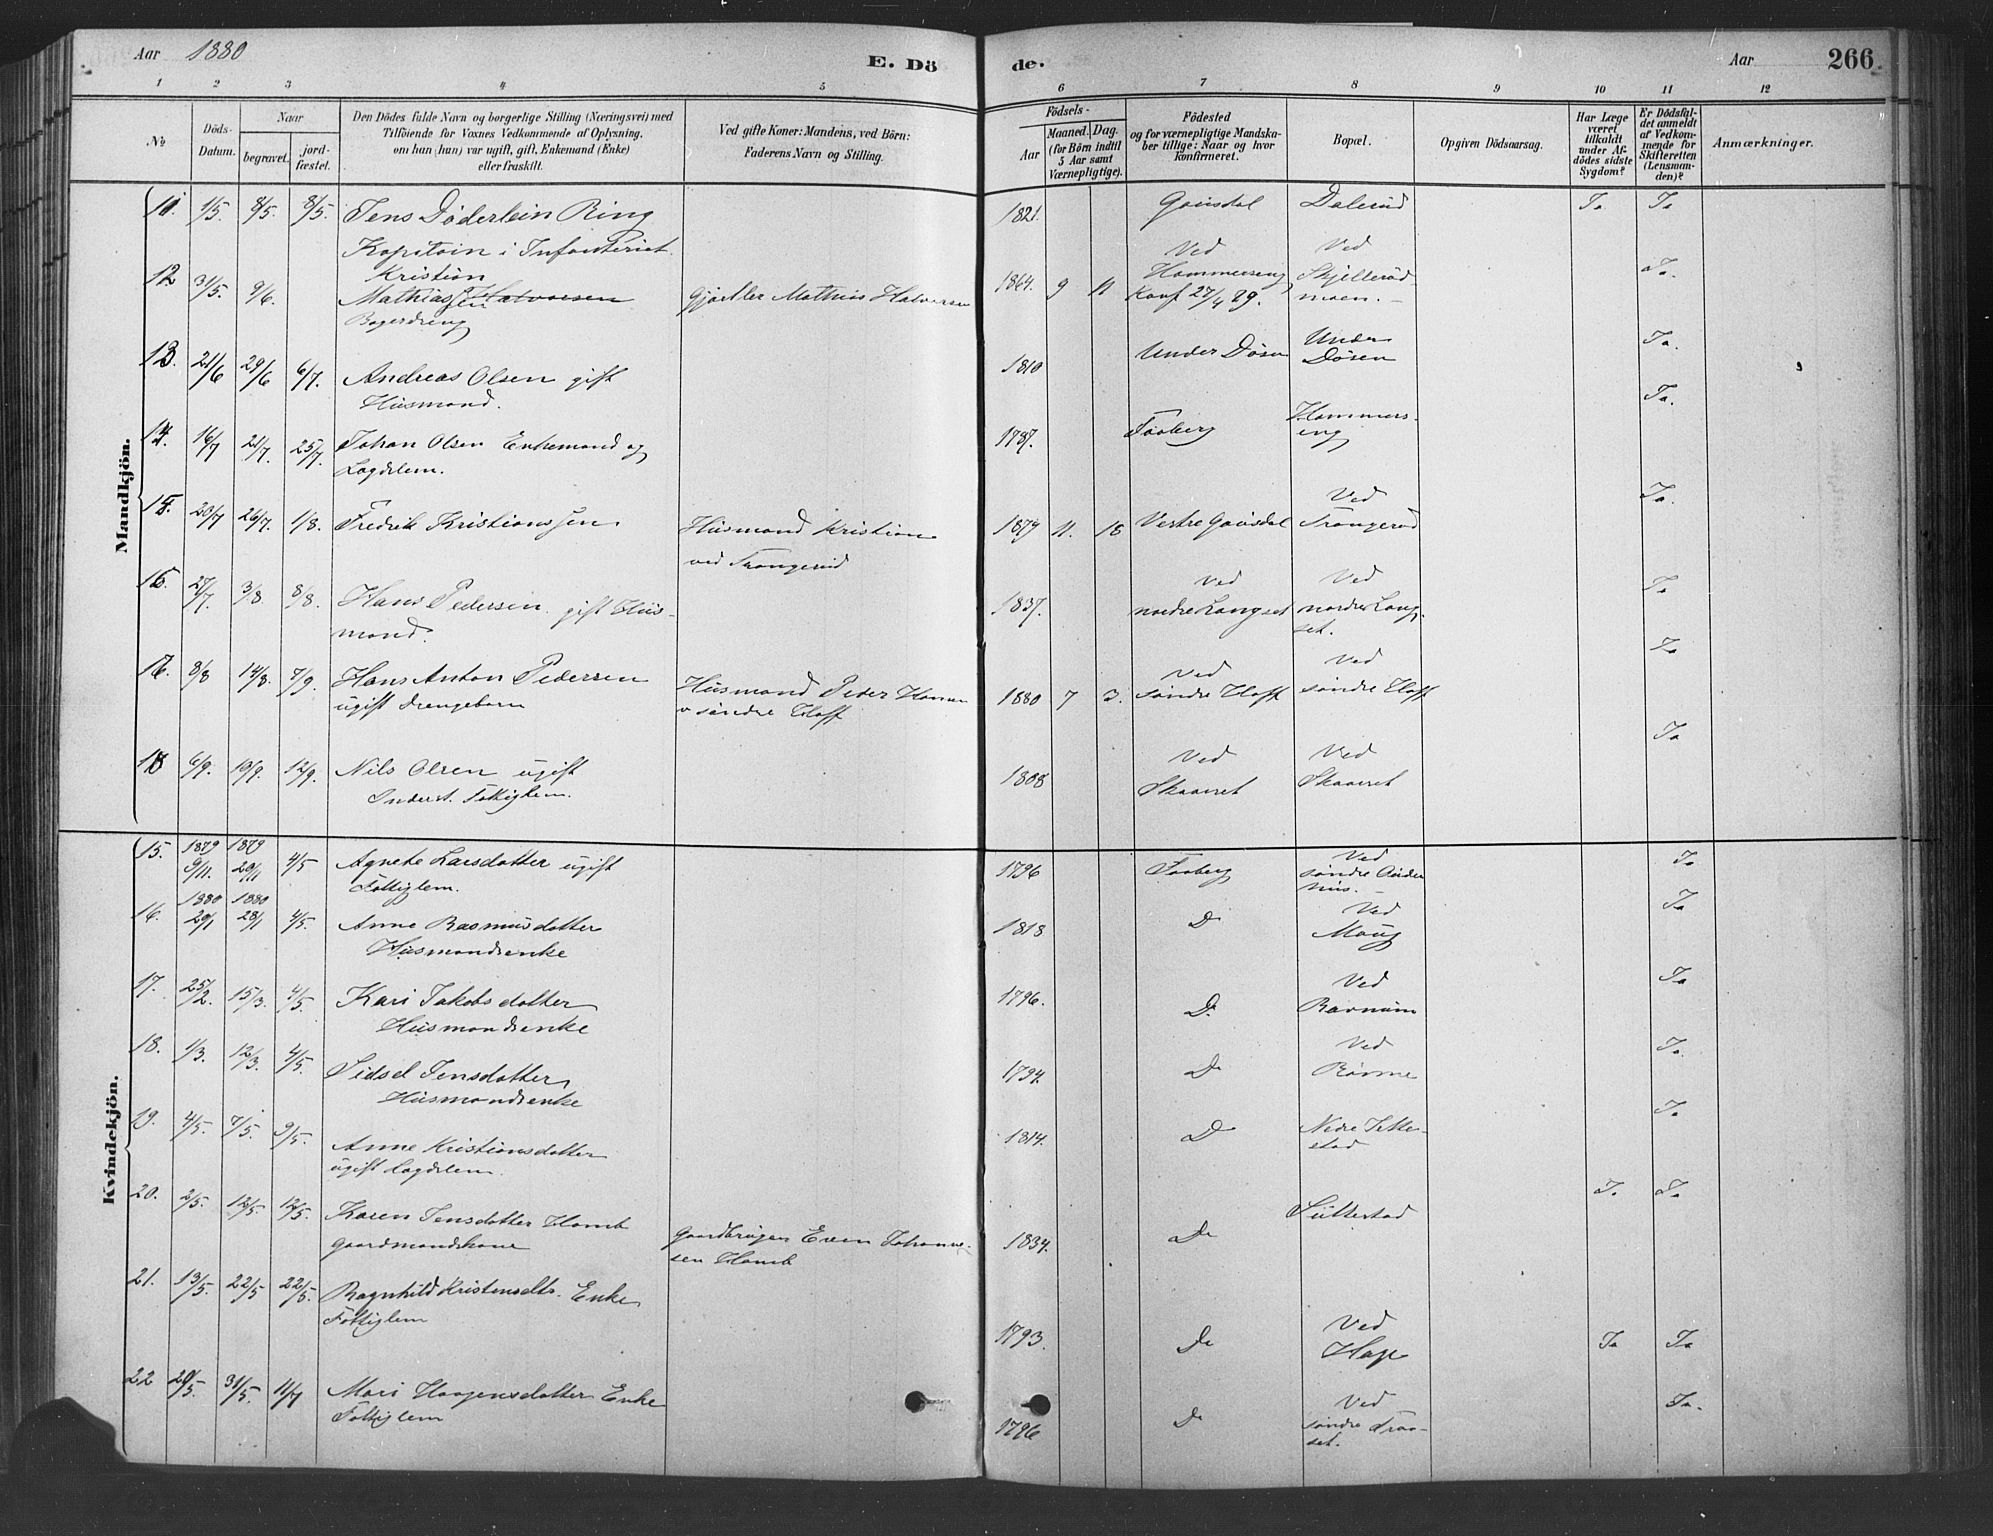 Aar 1880
E. Dö
de.
Aar
266
1 2 3 4 5 6 7 8 9 10 11 12
No
Döds-
Datum.
Naar
begravet.
jord-
fæstet.
Den Dödes fulde Navn og borgerlige Stilling (Næringsvei) med
Tilföiende for Voxnes Vedkommende af Oplysning,
om han (hun) var ugift, gift, Enkemand (Enke)
eller fraskilt.
Ved gifte Koner: Mandens, ved Börn:
Faderens Navn og Stilling.
Födsels-
Aar
Maaned. Dag.
(for Börn indtil
5 Aar samt
Værnepligtige).
Födested
og for værnepligtige Mandska-
ber tillige: Naar og hvor
konfirmeret.
Bopæl.
Opgiven Dödsaarsag.
Har Læge
været
tilkaldt
under Af-
dödes sidste
Sygdom?
Er Dödsfal-
det anmeldt
af Vedkom-
mende for
Skifteretten
(Lensman-
den)?
Anmærkninger.
Mandkjön.
11. 1/5. 8/5. 8/5. Jens Döderlein Ring
Kapitain i Infanteriet
1821. Gausdal Dalerud Ja Ja
12 31/5. 9/6. Kristian
Mathiassen Halvorsen
Bagerdreng
Gjørtler Mathias Halvorsen
1864. 9 11
Ved
Hammerseng
Konf 27/4 79.
Ved
Skjellerud
moen.
Ja.
13. 21/6 29/6 6/7. Andreas Olsen gift
Husmand.
1810 Under Døsen
Under
Døsen
Ja.
14. 16/7 21/7. 25/7. Johan Olsen Enkemand og
Lægdslem.
1787. Faaberg
Hammers-
eng
Ja.
15. 20/7 26/7. 1/8. Fredrik Kristianssen
Husmand Kristian
ved Trangerud
1879 11. 18 Vestre Gausdal
Ved
Trangerud
Ja.
16. 27/7. 3/8 8/8. Hans Pedersen gift Hus-
mand.
1837.
Ved
nordre Langset
Ved
nordre Lang-
set.
Ja
17. 8/8 14/8. 7/9. Hans Anton Pedersen
ugift Drengebarn
Husmand Peder Hansen
v søndre Hoff
1880 7 3.
Ved
søndre Hoff
Ved
søndre Hoff
Ja
18 6/9. 10/9. 12/9. Nils Olsen ugift
Inderst. Fattiglem.
1808
Ved
Skaaret
Ved
Skaaret
Ja
Kvindekjön.
15. 1879 9/11. 1879 20/11 4/5 Agnete Larsdatter ugift
Fattiglem.
1796 Faaberg
Ved
søndre
Ja
16. 1880 20/1 1880 28/1 4/5. Anne Rasmusdatter
Husmandsenke
1818 Do
Ved
Ja
17. 25/2. 15/3. 4/5. Kari Jakobsdatter
Husmandsenke
1796. Do
Ved
Ravnum
Ja
18. 1/3. 12/3. 4/5. Sidsel Jensdatter
Husmandsenke
1794. Do
Ved
Ja.
19. 4/5. 7/5. 9/5. Anne Kristiansdatter
ugift Lægdslem.
1814. Do
Nedre Jette-
stad
Ja
20. 2/5. 12/5. 12/5. Karen Jensdatter Homb
Gaardmandskone
Gaardbruger Even Johanne-
sen Homb
1834. Do Suttestad Ja Ja
21. 13/5. 22/5 22/5. Ragnhild Kristensdtr. Enke
Fattiglem
1793. Do
Ved
Hage
Ja Ja
22 20/5. 31/5. 11/7 Mari Haagensdatter Enke
Fattiglem
1796 Do
Ved
søndre Traa-
set.
Ja.